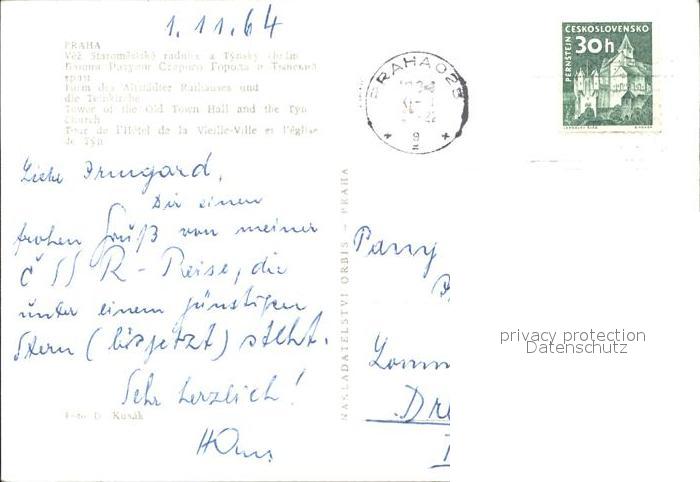 1.11.64
PRAHA
Věž Staroměstské radnice a Týnský chrám
Башня Ратуши Старого Города и Тынский
храм
Turm des Altstädter Rathauses und
die Teinkirche
Tower of the Old Town Hall and the Týn
Church
Tour de l'Hôtel de la Vieille-Ville et l'église
de Týn
PRAHA 025
PERNŠTEJN
ČESKOSLOVENSKO
30h
Liebe Irmgard,
Dir einen
frohen Gruß von meiner
ČSSR-Reise, die
unter einem günstigen
Stern (bis jetzt) steht.
Sehr herzlich!
Hans
Foto D. Kusák
NAKLADATELSTVÍ ORBIS – PRAHA
Parry
Lomm
Dre
privacy protection
Datenschutz